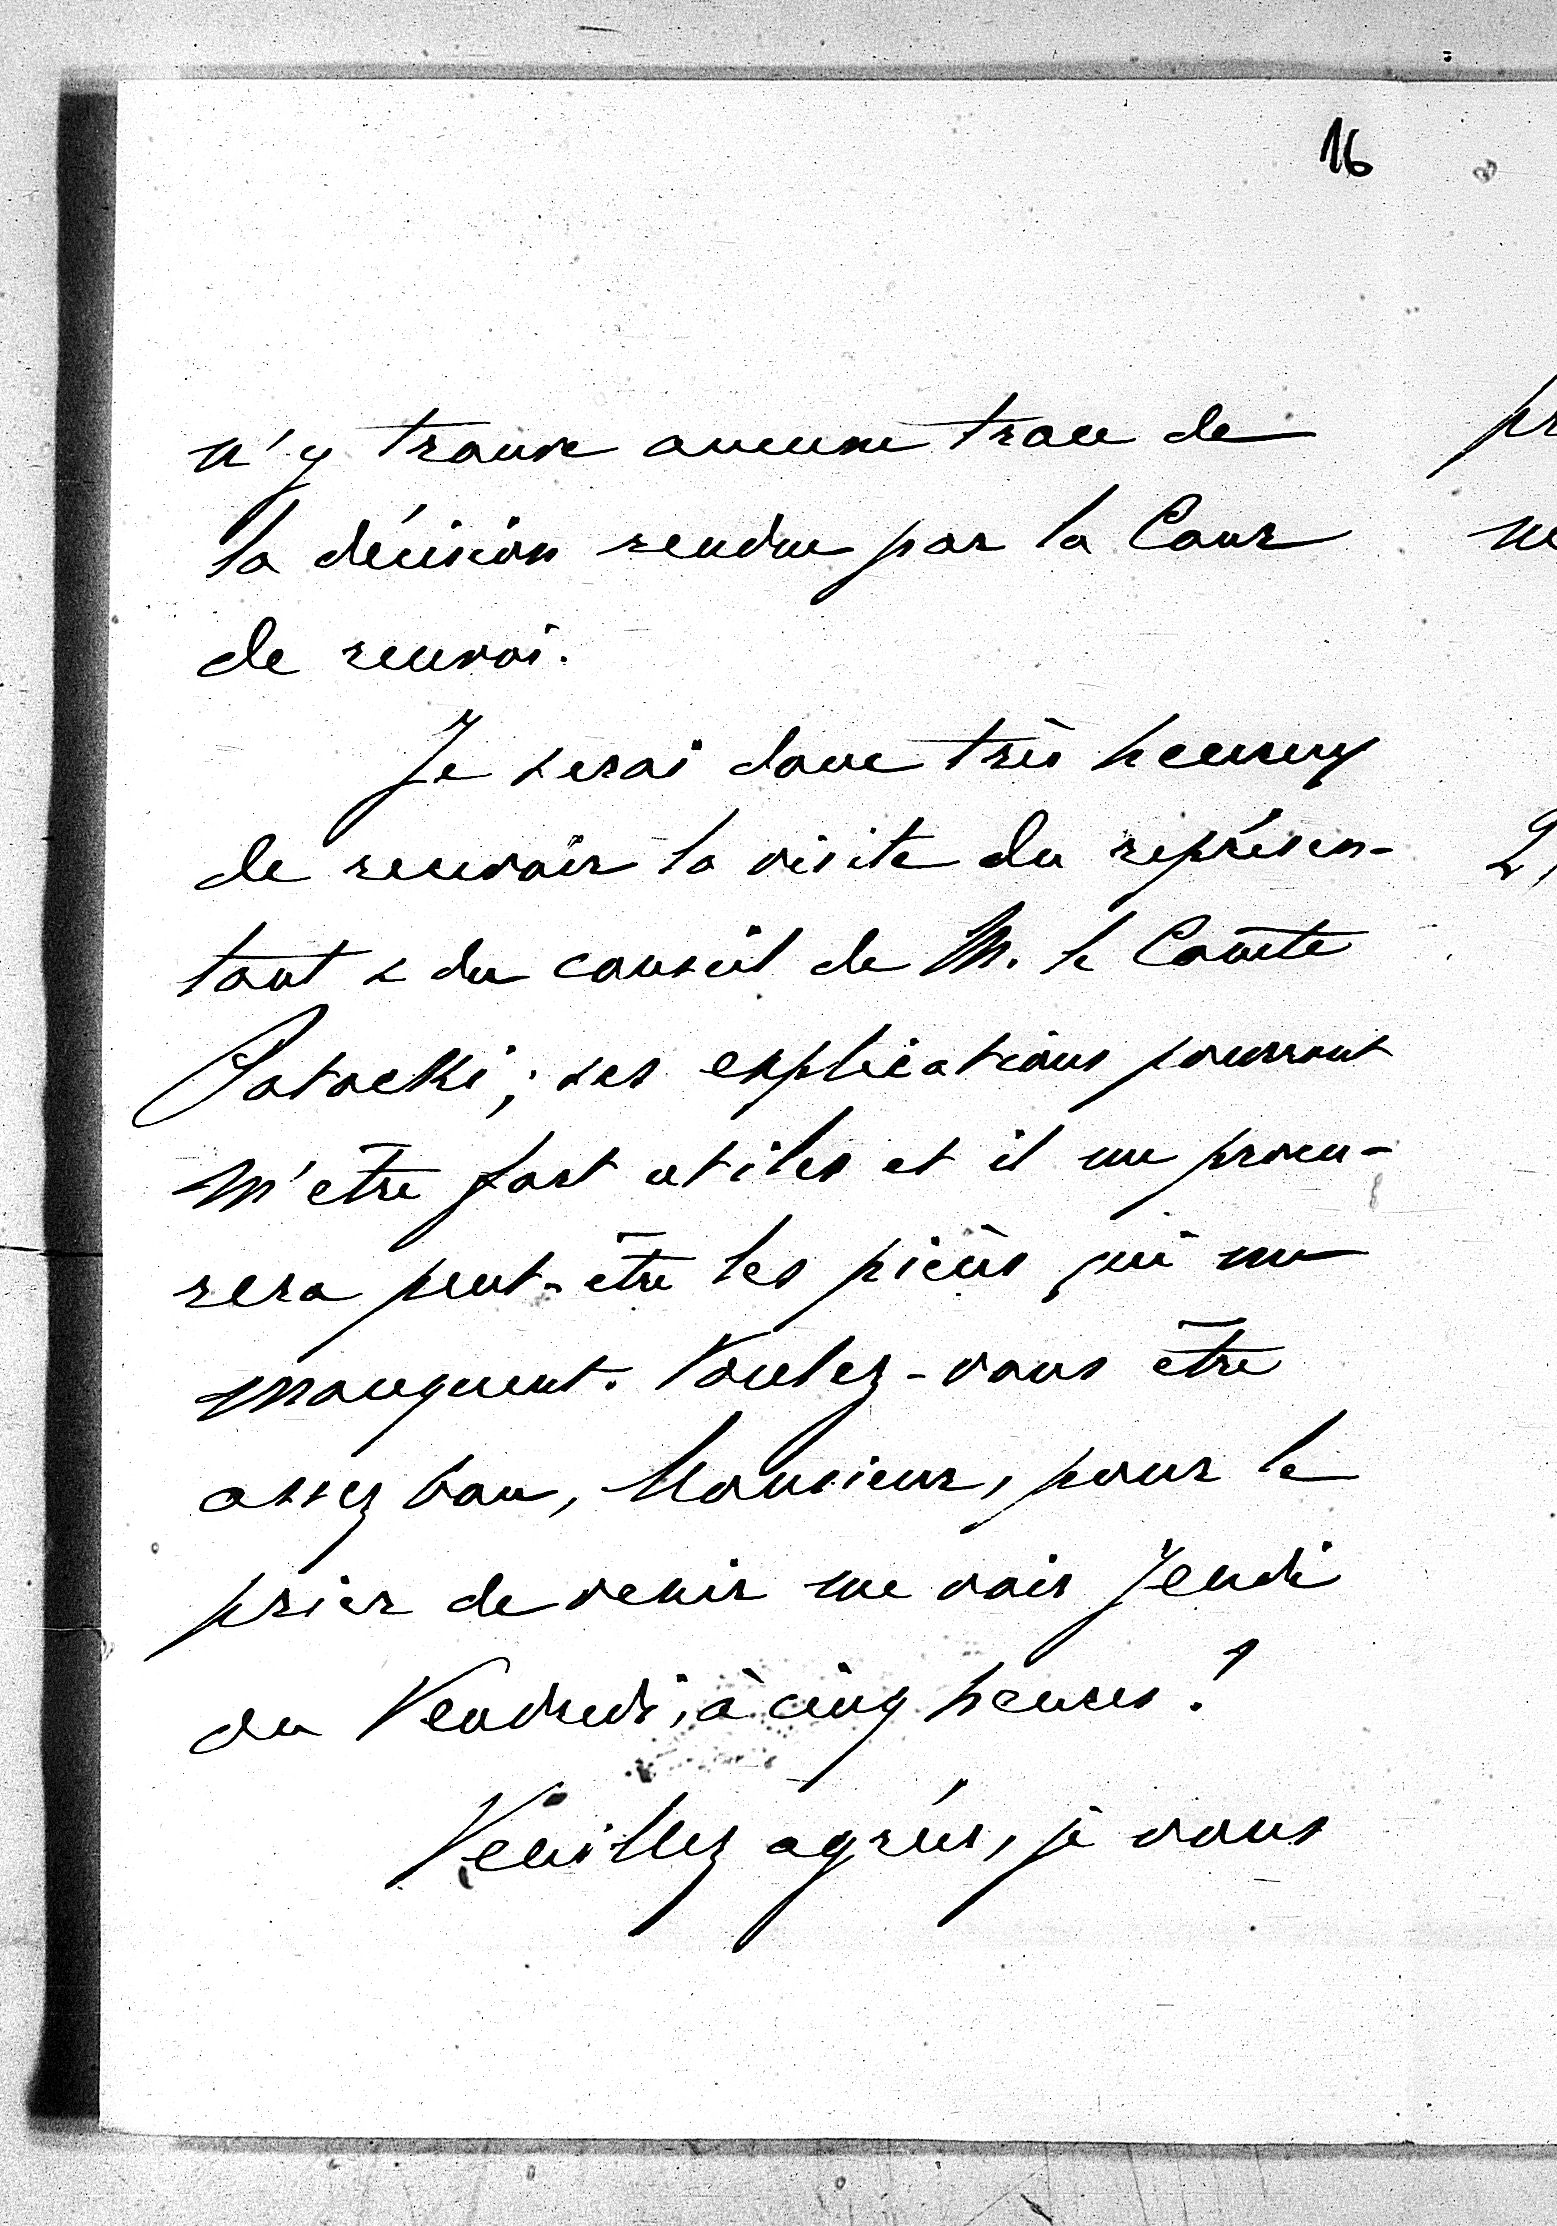 16
n'y trouve aucune trace de
la décision rendue par la Cour
de renvoi.
Je serai donc très heureux
de recevoir la visite du représen-
tant & du conseil de M. le Comte
Potocki ; ses explications pourront
m'être fort utiles et il me procu-
rera peut-être les pièces qui me
manquent. Voulez-vous être
assez bon, Monsieur, pour le
prier de venir me voir Jeudi
ou Vendredi, à cinq heures ?
Veuillez agréer, je vous
pr
ne
2,